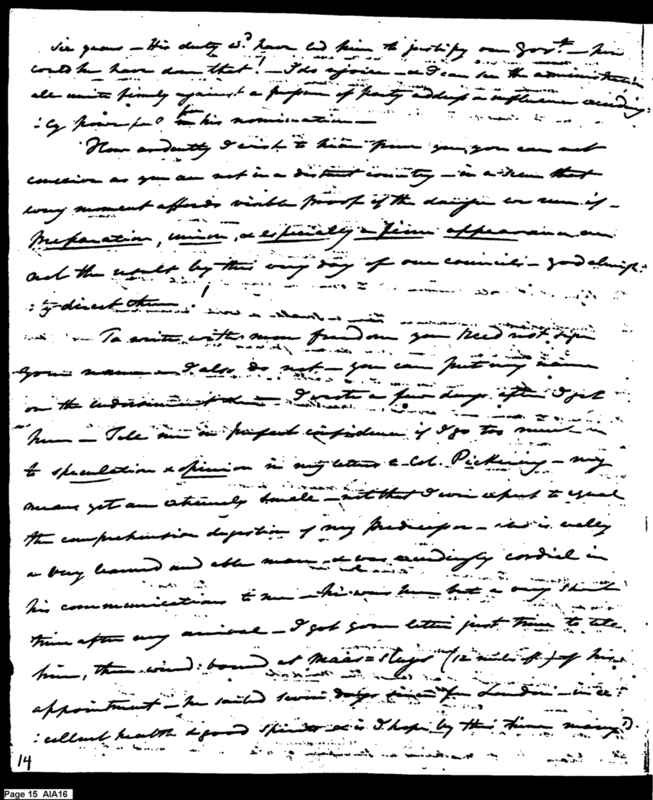 six years — His duty wd. have led him to justify our Govt. — how
could he have done that! — I do rejoice — & I can see the administration
all unite firmly against a purpose of party address & influence exceeding
:ly powerful in his nomination —
How ardently I wish to hear from you, you can not
conceive as you are not in a distant country — in a view that
every moment affords visible proof of the danger we run if —
Preparation, union, & especially a firm appearance are
not the result by this very day of our councils — god almigh:
:ty direct them!
To write with more freedom you need not sign
your name — I also do not — you can put my name
on the indorsement — I wrote a few days after I got
here — Tell me in perfect confidence if I go too much
to speculation & opinion in my letters to Col. Pickering — my
means yet are extremely small — not that I ever expect to equal
the comprehensive digestion of my Predecessor — who is really
a very learned and able man — & was exceedingly cordial in
his communications to me — he was here but a very short
time after my arrival — I got your letter just time to tell
him, then wind-bound at Maas=sluys (12 miles off) of his
appointment — he sailed seven days since for London — in ex:
:cellent health & good spirits & is I hope by this time marryd.
14
Page 15 AIA16